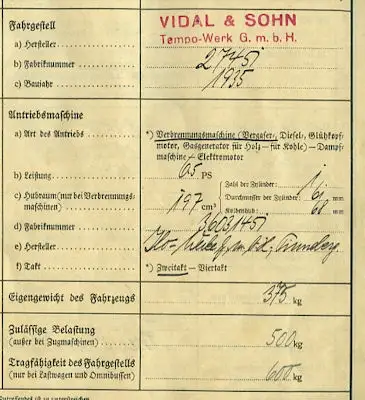 Fahrgestell
VIDAL & SOHN
Tempo-Werk G. m. b. H.
a) Hersteller
b) Fabriknummer 27451
c) Baujahr 1935
Antriebsmaschine
a) Art des Antriebs *) Verbrennungsmaschine (Vergaser-, Diesel-, Glühkopf-
motor, Gasgenerator für Holz — für Kohle) — Dampf-
maschine — Elektromotor
b) Leistung 6,5 PS
c) Hubraum (nur bei Verbrennungs-
maschinen) 197 cm³
Zahl der Zylinder: 1
Durchmesser der Zylinder: mm
Kolbenhub: 68 mm
d) Fabriknummer
e) Hersteller
f) Takt *) Zweitakt — Viertakt
Eigengewicht des Fahrzeugs 375 kg
Zulässige Belastung
(außer bei Zugmaschinen) 500 kg
Tragfähigkeit des Fahrgestells
(nur bei Lastwagen und Omnibussen) 600 kg